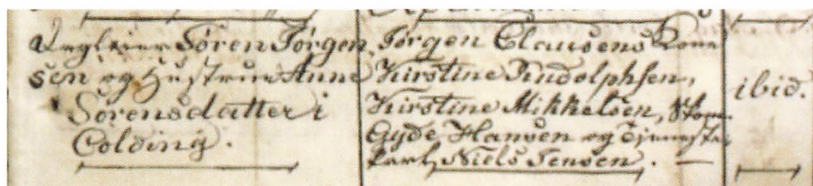 Søren Jørgen
sen og Hustrue Anne
Sørensdatter i
Colding.
Jørgen Clausens Kone
Kirstine Rudolphsen,
Kirstine Mikkelsen,
Gyde Hansen og Tjeneste
karl Niels Jensen.
ibid.